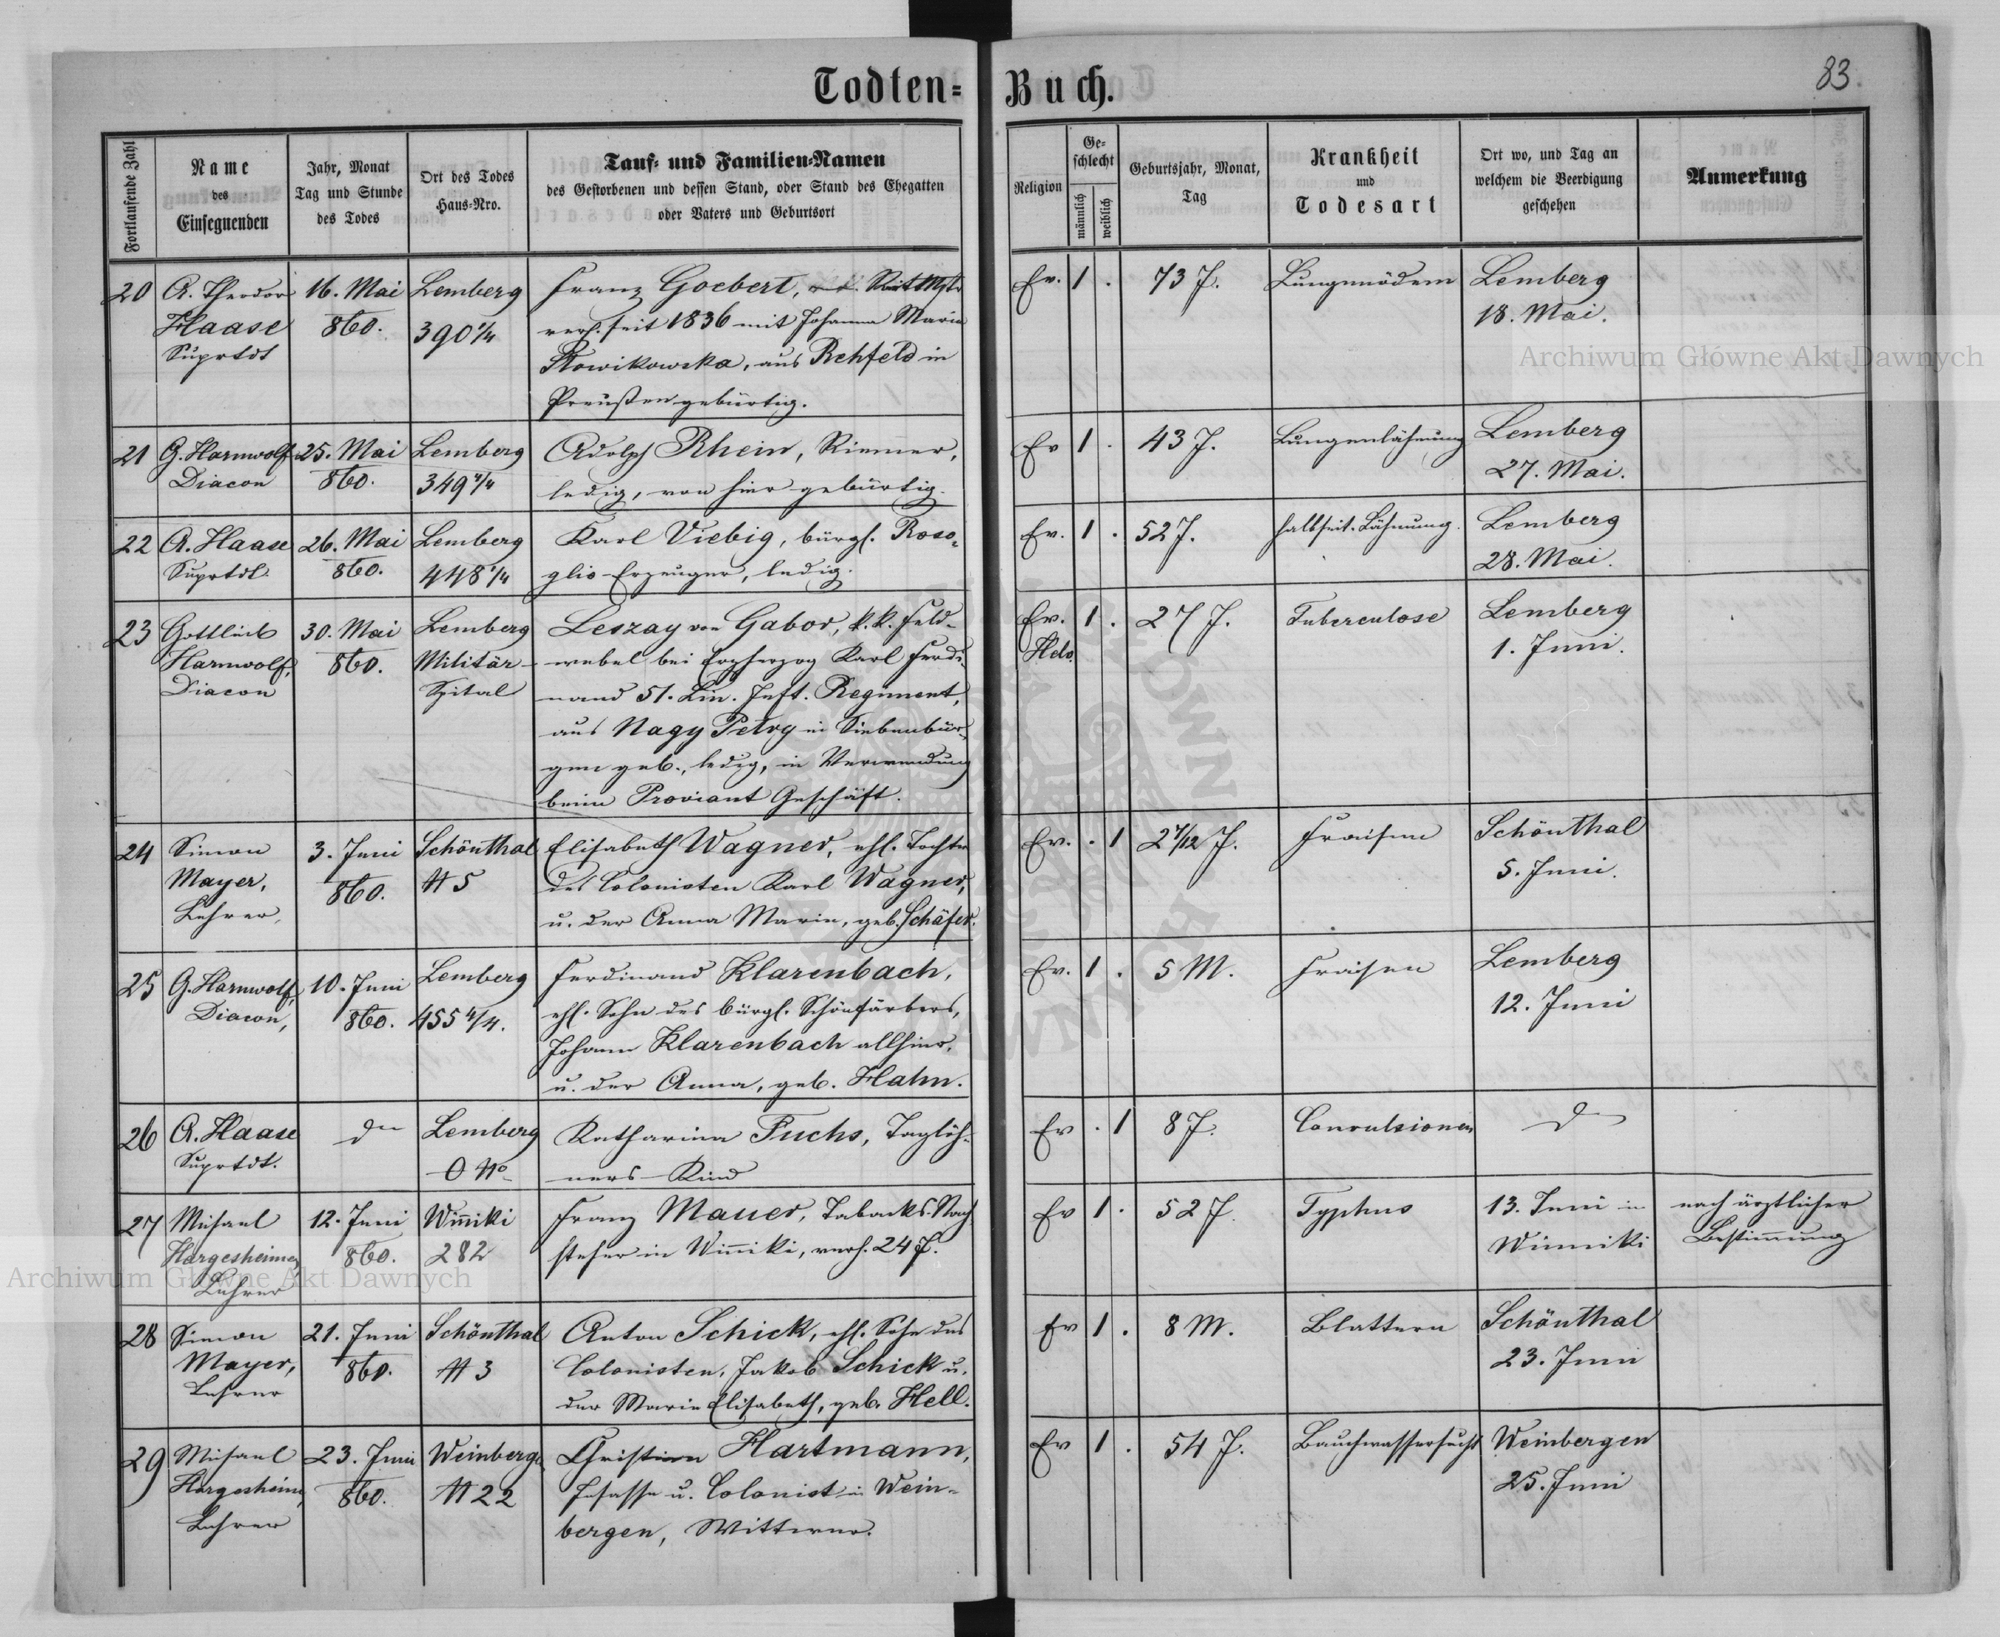 Todten=
Buch.
83.
Fortlaufende Zahl
Name
des
Einsegnenden
Jahr, Monat
Tag und Stunde
des Todes
Ort des Todes
Haus-Nro.
Tauf- und Familien-Namen
des Gestorbenen und dessen Stand, oder Stand des Ehegatten
oder Vaters und Geburtsort
Religion
Ge-
schlecht
männlich
weiblich
Geburtsjahr, Monat,
Tag
Krankheit
und
Todesart
Ort wo, und Tag an
welchem die Beerdigung
geschehen
Anmerkung
20
A. Theodor
Haase
Suprtdt
16. Mai
860.
Lemberg
390 1/4
Franz Goebert,
verh. seit 1836 mit Johanna Maria
Slowikowska, aus Rehfeld in
Preußen gebürtig.
Ev. 1 .
73 J.
Lungenödem
Lemberg
18. Mai.
21
G. Harnwolf
Diacon
25. Mai
860.
Lemberg
349 4/4
Adolph Rhein, Riemer,
ledig, von hier gebürtig.
Ev 1 .
43 J.
Lungenlähmung
Lemberg
27. Mai.
22
A. Haase
Suprtdt.
26. Mai
860.
Lemberg
448 1/4
Karl Viebig, bürgl. Roso-
glio-Erzeuger, ledig.
Ev. 1 .
52 J.
halbseit. Lähmung.
Lemberg
28. Mai.
23
Gottlieb
Harnwolf,
Diacon
30. Mai
860.
Lemberg
Militär-
Spital
Leszay von Gabor, k. k. Feld-
webel bei Erzherzog Karl Ferdi-
nand 51. Lin. Inft. Regiment,
aus Nagy Petry in Siebenbür-
gen geb., ledig, in Verwendung
beim Proviant Geschäft.
Ev. 1 .
Helv.
27 J.
Tuberculose
Lemberg
1. Juni.
24
Simon
Mayer,
Lehrer,
3. Juni
860.
Schönthal
N 5
Elisabeth Wagner, ehl. Tochter
des Colonisten Karl Wagner,
u. der Anna Maria, geb. Schäfer.
Ev. . 1
2 7/12 J.
Fraisen
Schönthal
5. Juni.
25
G. Harnwolf,
Diacon,
10. Juni
860.
Lemberg
455 4/4.
Ferdinand Klarenbach,
ehl. Sohn des bürgl. Schönfärbers,
Johann Klarenbach allhier,
u. der Anna, geb. Hahn.
Ev. 1 .
5 M.
Fraisen
Lemberg
12. Juni
26
A. Haase
Suprtdt.
dto
Lemberg
0 No
Katharina Fuchs, Taglöh-
ners-Kind
Ev . 1
8 J.
Convulsionen
dto
27
Michael
Hargesheimer
Lehrer
12. Juni
860.
Winniki
282
Franz Mauer, Tabacks-Nach
steher in Winniki, verh. 24 J.
Ev 1 .
52 J.
Typhus
13. Juni in
Winniki
nach ärztlicher
Bestimmung
28
Simon
Mayer,
Lehrer
21. Juni
860.
Schönthal
N 3
Anton Schick, ehl. Sohn des
Colonisten, Jakob Schick u.
der Marie Elisabeth, geb. Hell.
Ev 1 .
8 M.
Blattern
Schönthal
23. Juni
29
Michael
Hargesheimer,
Lehrer
23. Juni
860.
Weinbergen
N 22
Christian Hartmann,
Insasse u. Colonist in Wein-
bergen, Wittwer.
Ev 1 .
54 J.
Bauchwassersucht
Weinbergen
25. Juni
Archiwum Główne Akt Dawnych
Archiwum Główne Akt Dawnych